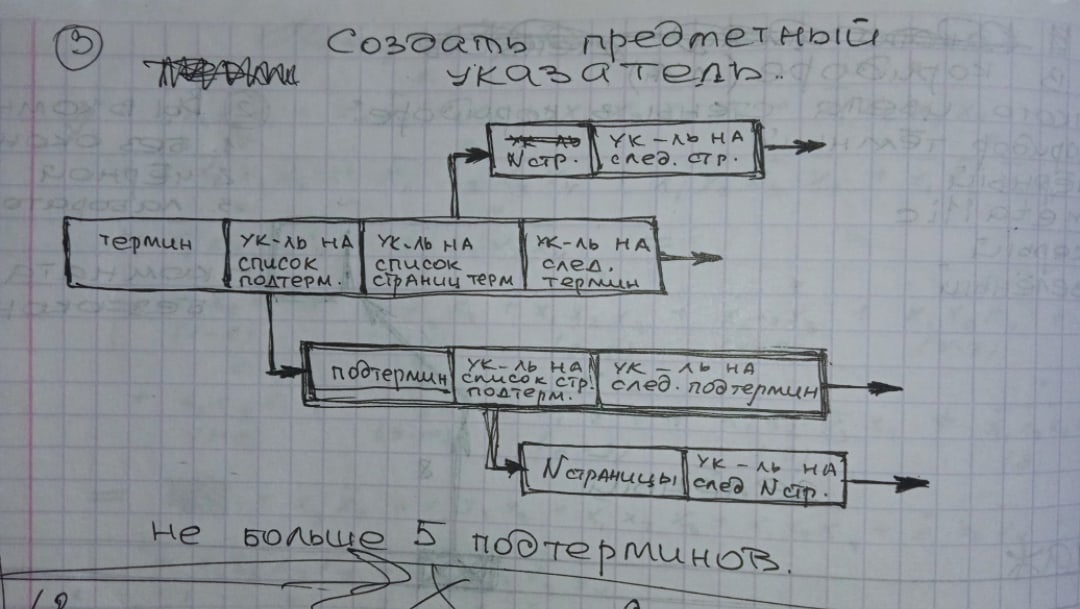 ③ Создать предметный
указатель.
N стр.
ук-ль на
след. стр.
термин
ук-ль на
список
подтерм.
ук-ль на
список
страниц терм
ук-ль на
след.
термин
подтермин
ук-ль на
список стр.
подтерм.
ук-ль на
след. подтермин
N страницы
ук-ль на
след N стр.
не больше 5 подтерминов.